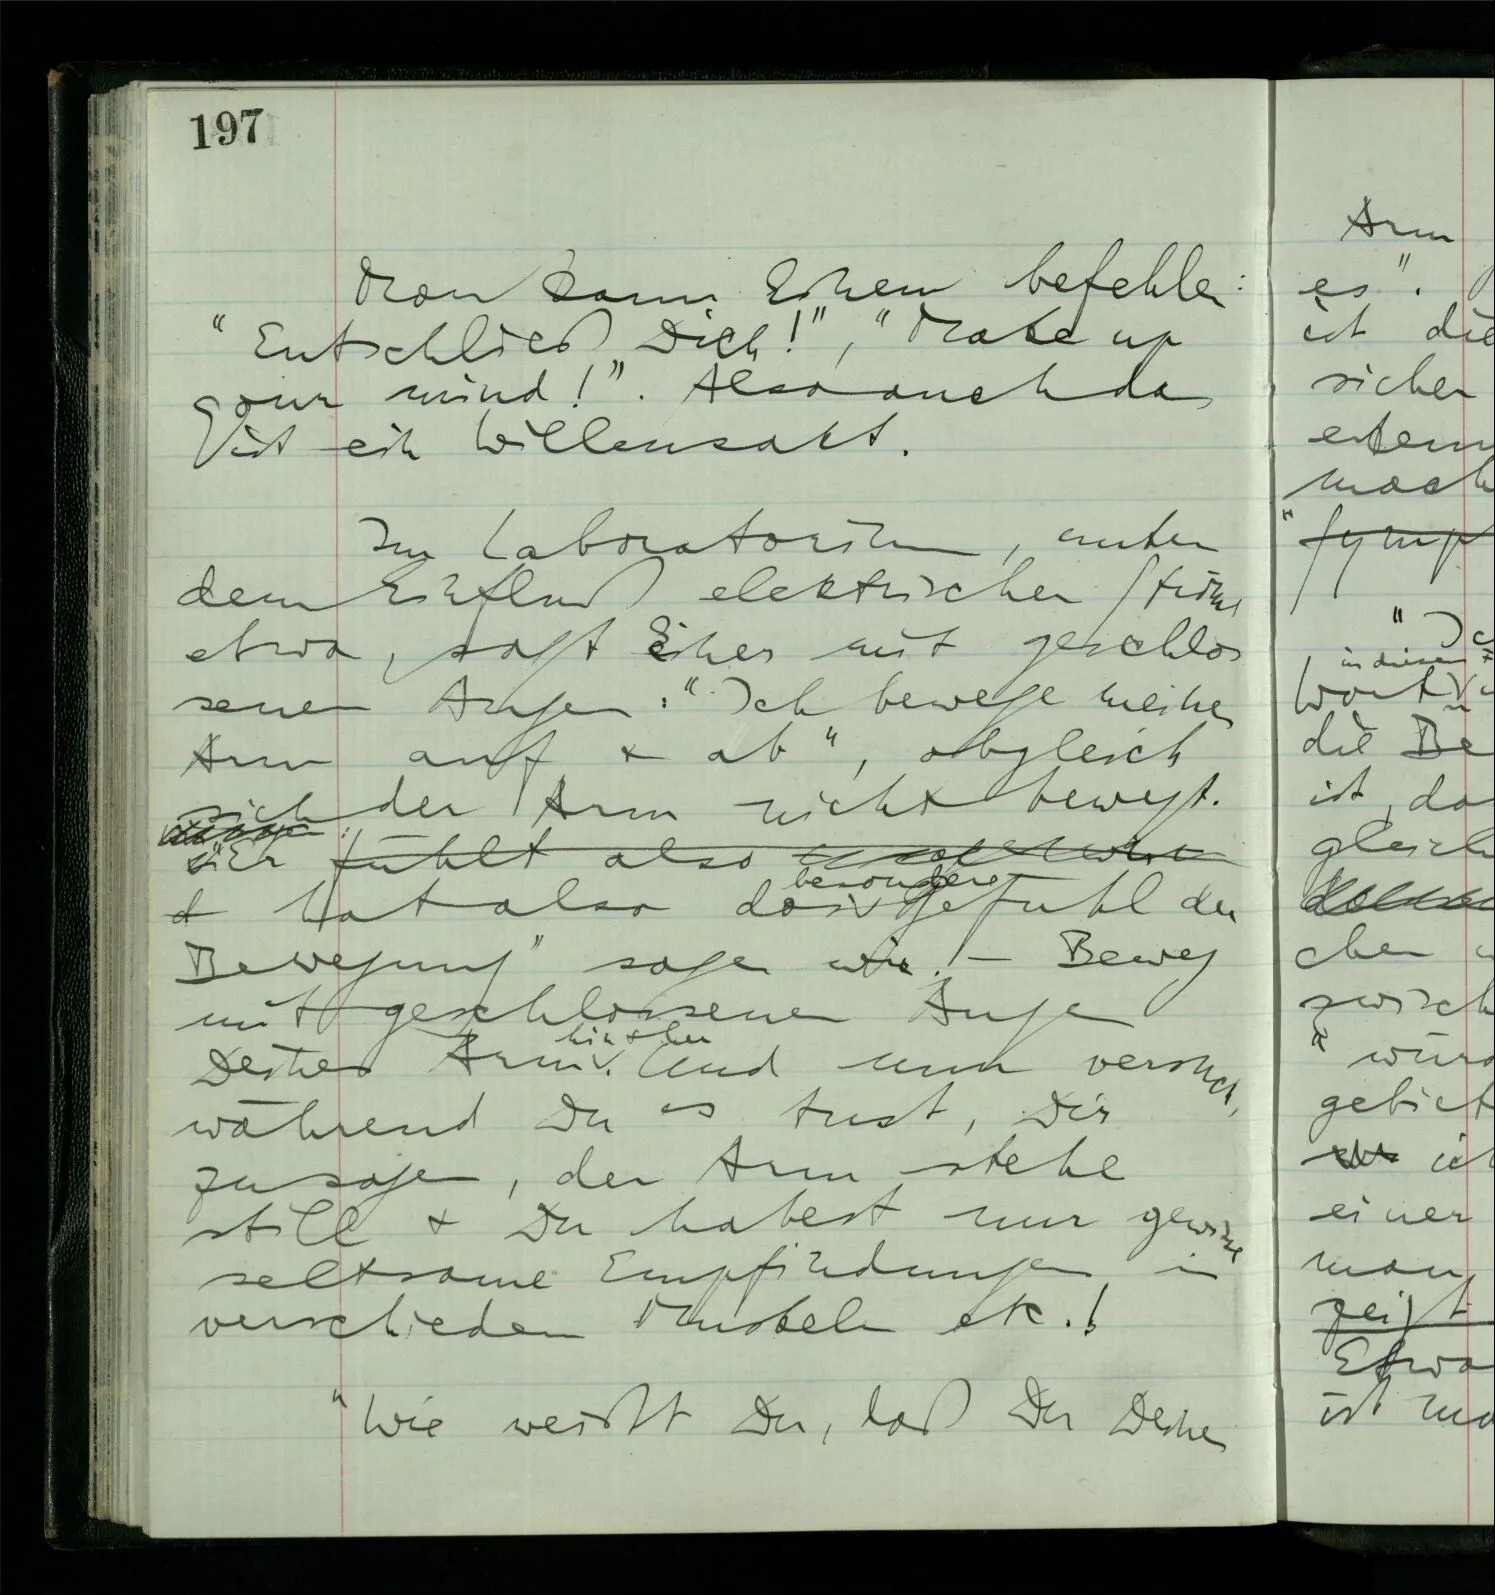 197
Man kann Einem befehlen:
"Entschließ Dich!", "Make up
your mind!". Also auch das
ist ein Willensakt.
Im Laboratorium, unter
dem Einfluß elektrischer Ströme
etwa, sagt Einer mit geschlos
senen Augen: "Ich bewege meinen
Arm auf & ab", obgleich
sich der Arm nicht bewegt.
"Er fühlt also
besondere
hat also das Gefühl der
Bewegung" sagen wir! – Beweg
mit geschlossenen Augen
hin & her
Deinen Arm. Und nun versuch,
während Du es tust, Dir
zu sagen, der Arm stehe
still & Du habest nur gewisse
seltsame Empfindungen in
verschiedenen Muskeln etc.!
"Wie weißt Du, daß Du Deinen
Arm
es".
ist die
sicher
mach
"
in diesem
Wort
die Be
ist, da
gleich
chen
zwisch
gebiet
einer
man
zeigt
Etwa
ist